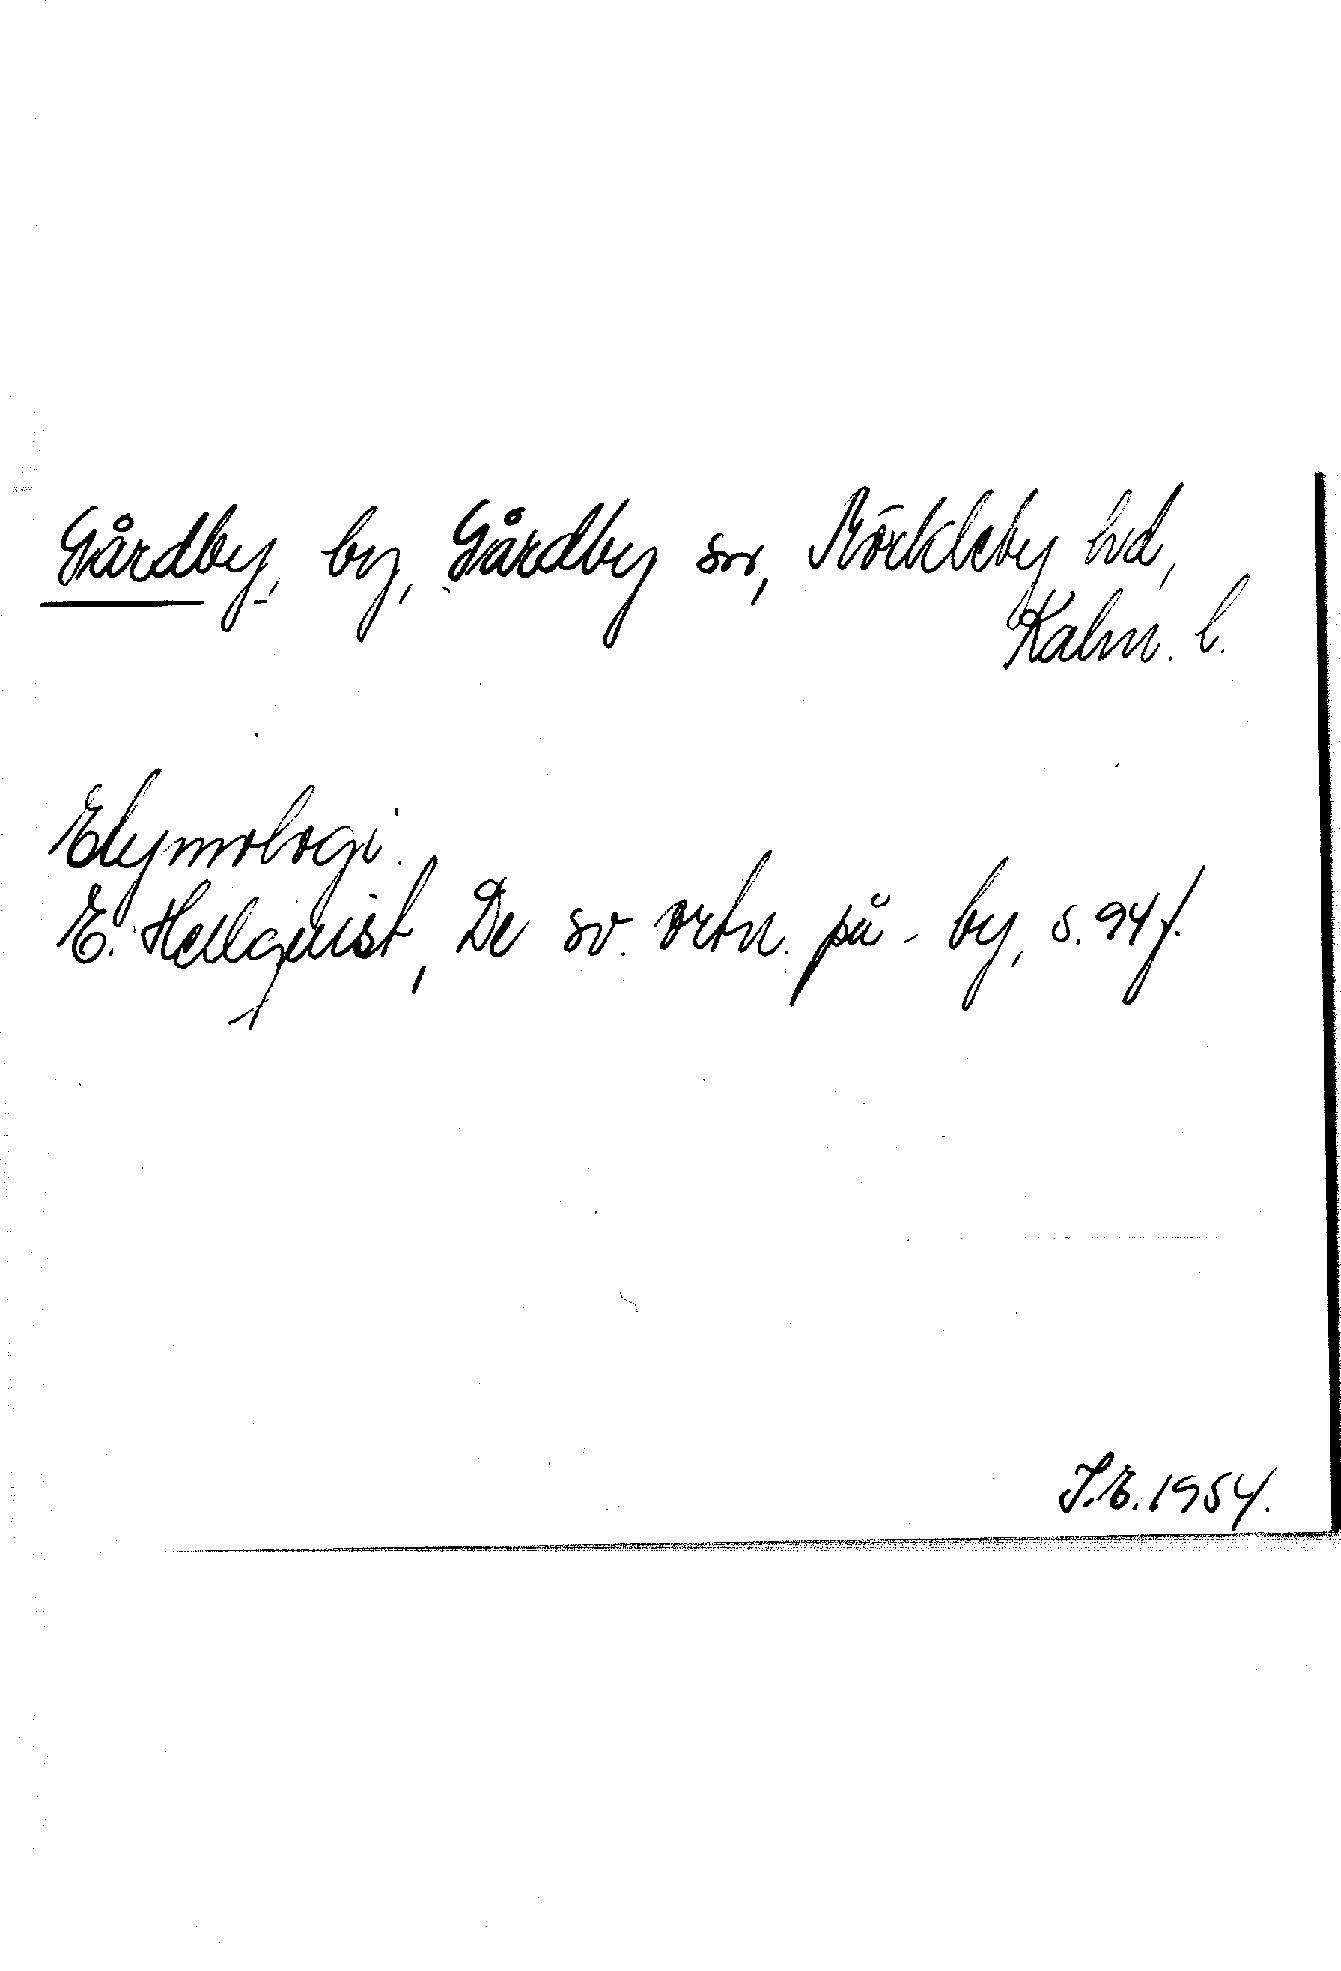 Gårdby, by, Gårdby sn, Mörkleby hd,
Kalm. l.
Etymologi.
E. Hellquist, De sv. ortn. på -by, s. 94 f.
I.E. 1954.